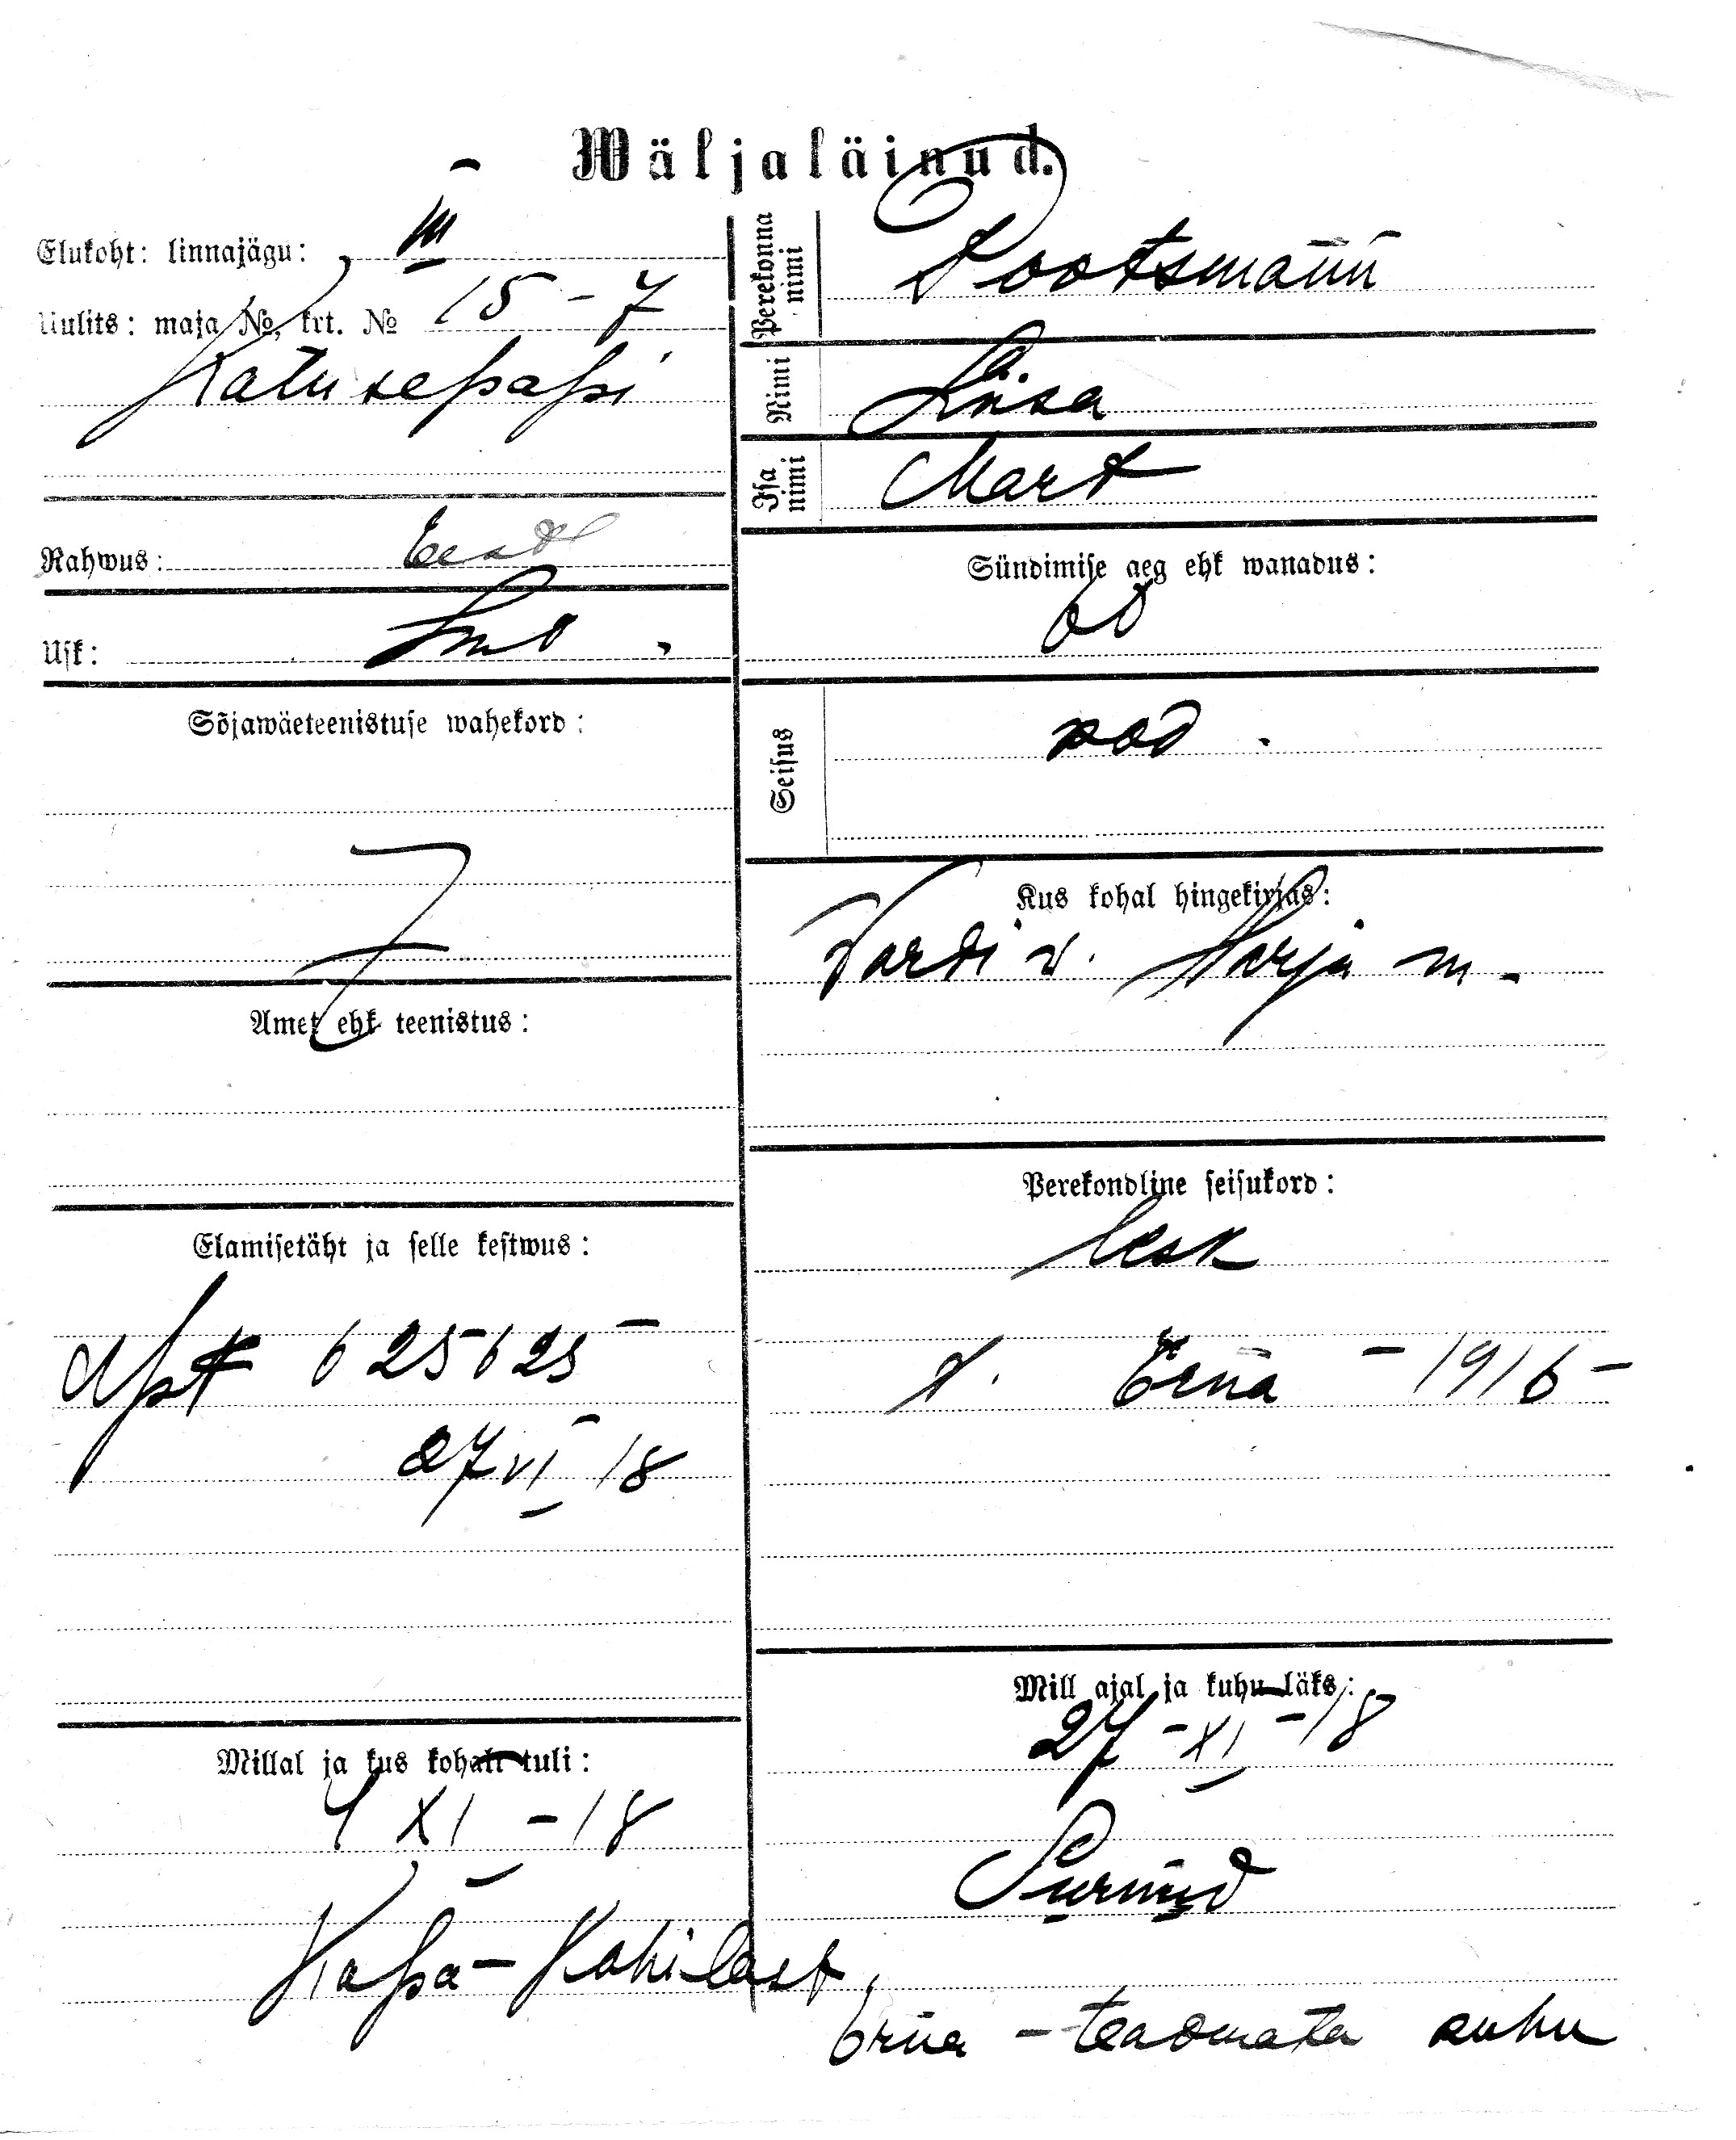 Wäljaläinud.
Elukoht: linnajägu: III
Uulits: maja №, krt. № 15 - 7
Katusepapi
Rahwus: Eesti
Usk: Lut.
Sõjawäeteenistuse wahekord:
Amet ehk teenistus:
Elamisetäht ja selle kestwus:
625625
27 VI 18
Millal ja kus kohalt tuli:
4 XI - 18
Kapa-Kohilast,
Perekonna nimi Pootsmann
Nimi Liisa
Isa nimi Mart
Sündimise aeg ehk wanadus:
Seisus
Kus kohal hingekirjas:
Wardi w. Harju m.
Perekondline seisukord:
lesk
t. Erna - 1916 -
Mill ajal ja kuhu läks:
27 - XI - 18
Surnud
Erna - teadmata kuhu